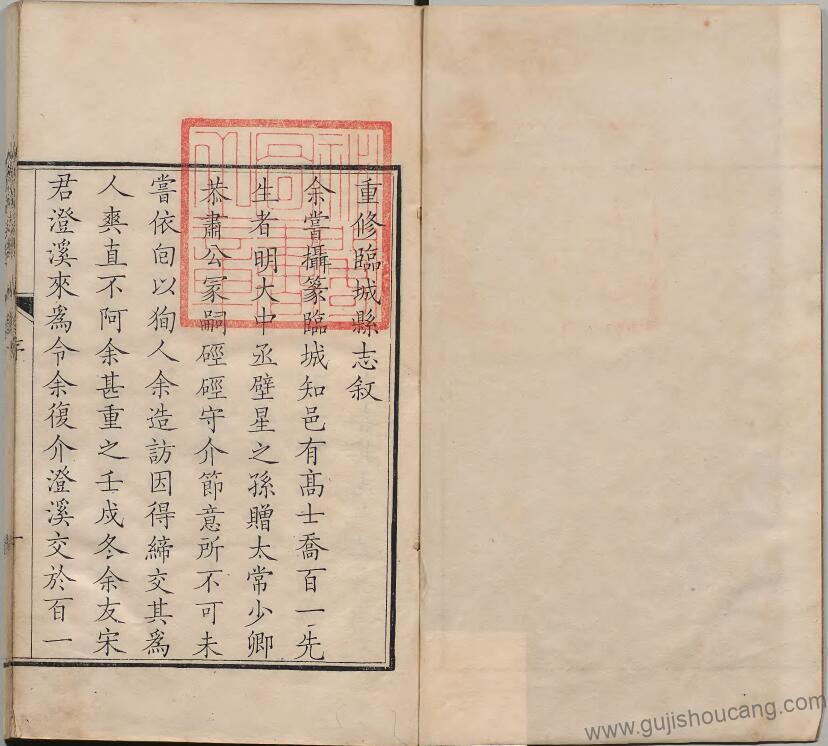 重修臨城縣志敘
余嘗攝篆臨城知邑有髙士喬百一先
生者明大中丞壁星之孫贈太常少卿
恭肅公冢嗣硜硜守介節意所不可未
嘗依佪以狥人余造訪因得締交其爲
人爽直不阿余甚重之壬戍冬余友宋
君澄溪來爲令余復介澄溪交於百一
序
一
www.gujishoucang.com